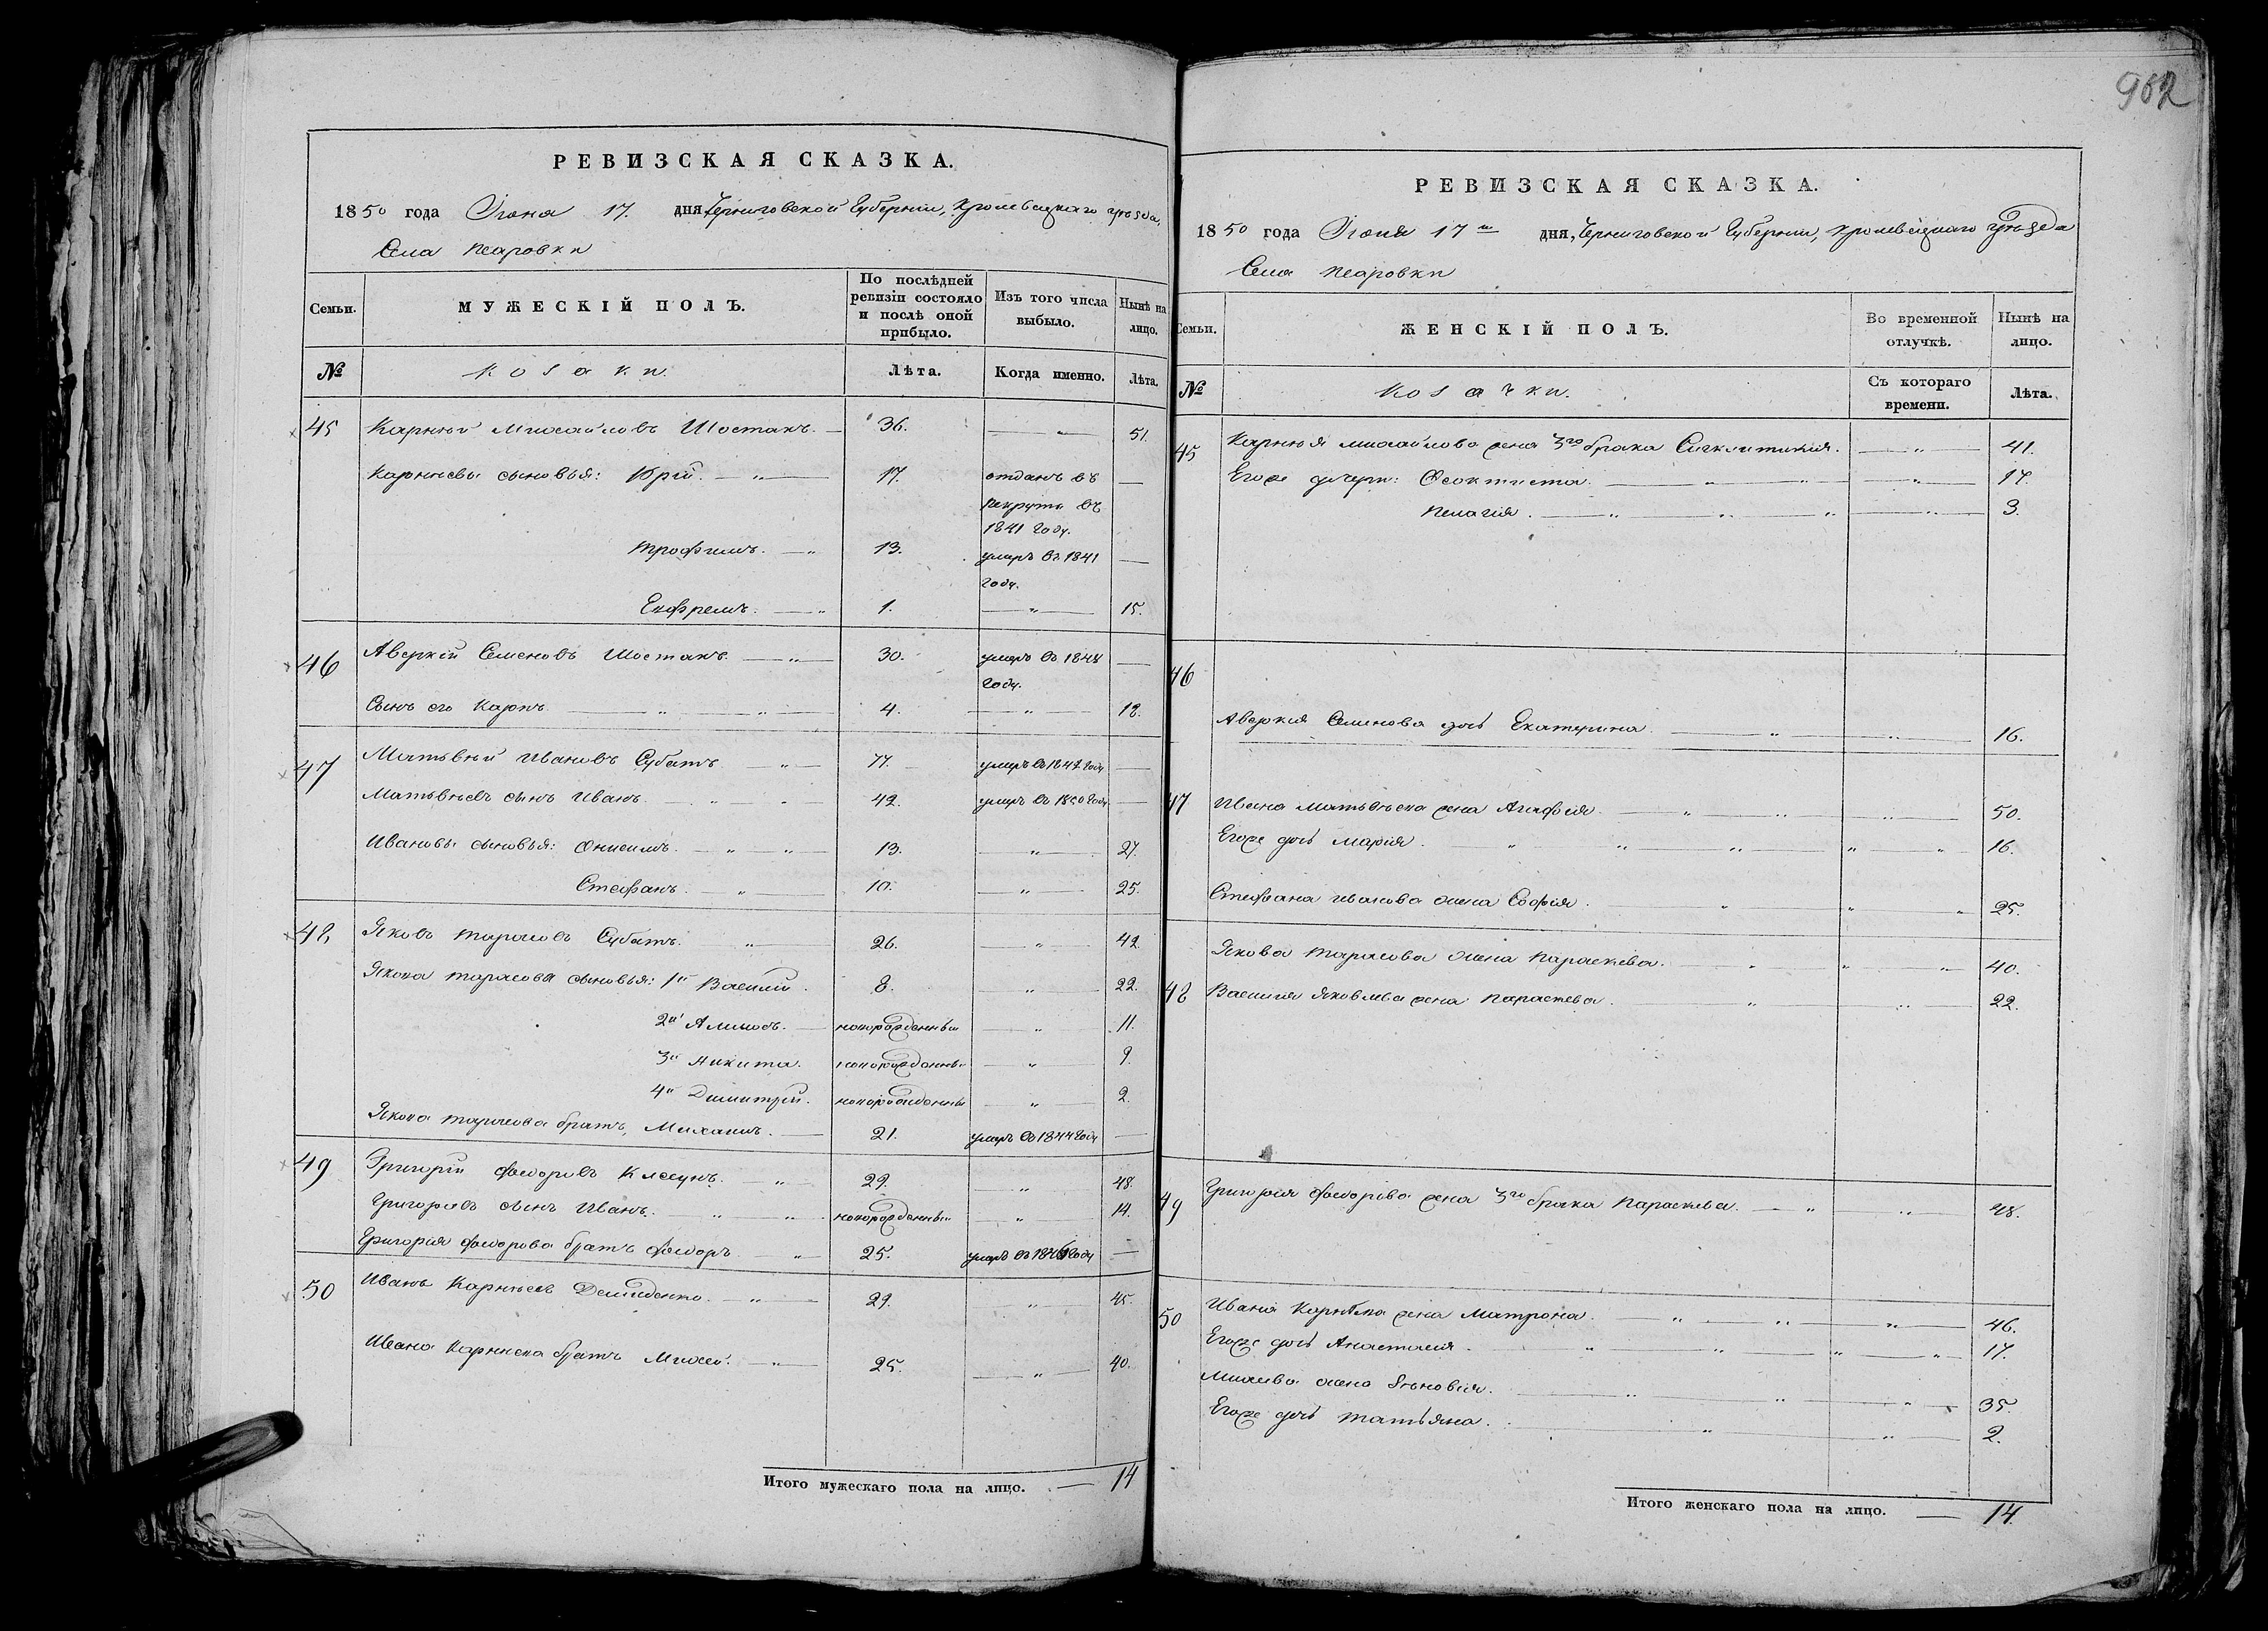 902
РЕВИЗСКАЯ СКАЗКА.
1850 года Іюня 17. дня Черниговской Губерніи, Кролевецкаго уѣзда,
Села
Семьи. МУЖЕСКІЙ ПОЛЪ. По послѣдней ревизіи состояло и послѣ оной прибыло. Изъ того числа выбыло. Нынѣ на лицо.
№ Козаки. Лѣта. Когда именно. Лѣта.
45 Карнѣй Михайловъ Шостакъ. 36. — „ — 51.
Карнѣевы сыновья: Юрій. 17. отданъ въ рекруты въ 1841 году. —
Трофимъ. 13. умеръ въ 1841 году. —
Ефремъ. 1. — „ — 15.
46 Аверкій Семеновъ Шостакъ. 30. умеръ въ 1848 году. —
Сынъ его Карпъ. 4. — „ — 18.
47 Матвѣй Ивановъ Субатъ 77. умеръ въ 1842 году —
Матвѣевъ сынъ Иванъ. 42. умеръ въ 1850 году —
Ивановы сыновья: Онисимъ. 13. — „ — 27.
Стефанъ. 10. — „ — 25.
48 Яковъ Тарасовъ Субатъ. 26. — „ — 42.
Якова Тарасова сыновья: 1й Василій. 8. — „ — 22.
2й новорожденный — „ — 11.
3й Никита. новорожденный — „ — 9.
4й Димитрій. новорожденный — „ — 2.
Якова Тарасова братъ, Михаилъ. 21. умеръ въ 1844 году —
49 Григорій Федоровъ 29. — „ — 48.
Григорьевъ сынъ Иванъ. новорожденный — „ — 14.
Григорія Федорова братъ Федоръ 25. умеръ въ 1846 году —
50 Иванъ Карнѣевъ Демиденко. 29. — „ — 45.
Ивана Карнѣева братъ Михей. 25. — „ — 40.
Итого мужескаго пола на лицо. — 14
РЕВИЗСКАЯ СКАЗКА.
1850 года Іюня 17го дня, Черниговской Губерніи, Кролевецкаго уѣзда
Села
Семьи. ЖЕНСКІЙ ПОЛЪ. Во временной отлучкѣ. Нынѣ на лицо.
№ Козачки. Съ котораго времени. Лѣта.
45 Карнѣя Михайлова жена 3го брака — „ — 41.
Егоже дочери: Феоктиста. — „ — 17.
Пелагія. — „ — 3.
46
Аверкія Семенова дочь Екатерина — „ — 16.
47 Ивана Матвѣева жена Агафія. — „ — 50.
Егоже дочь Марія. — „ — 16.
Стефана Иванова жена Софія. — „ — 25.
Якова Тарасова жена Параскева. — „ — 40.
48 Василія Яковлева жена Параскева. — „ — 22.
49 Григорія Федорова жена 3го брака Параскева. — „ — 48.
50 Ивана Карнѣева жена Матрона. — „ — 46.
Егоже дочь Анастасія. — „ — 17.
Михеева жена Зѣновія. — „ — 35.
Егоже дочь Татьяна. — „ — 2.
Итого женскаго пола на лицо. — 14.